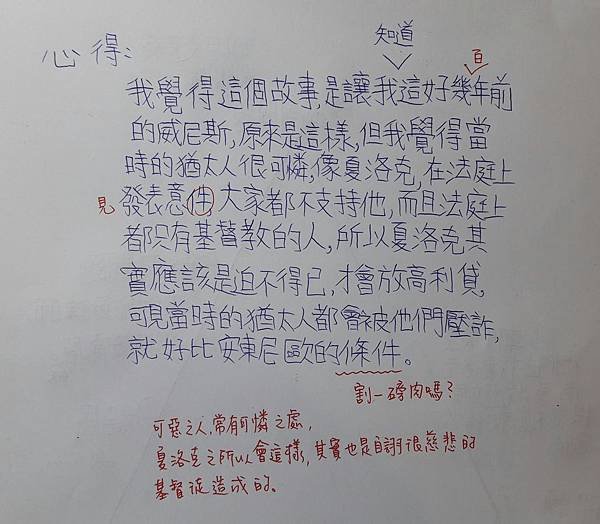 知道
心得:
百
我覺得這個故事,是讓我這好幾年前
的威尼斯,原來是這樣,但我覺得當
時的猶太人很可憐,像夏洛克,在法庭上
見 發表意件 大家都不支持他,而且法庭上
都只有基督教的人,所以夏洛克其
實應該是迫不得已,才會放高利貸,
可見當時的猶太人都會被他們壓詐,
就好比安東尼歐的條件。
割一磅肉嗎?
可惡之人,常有可憐之處,
夏洛克之所以會這樣,其實也是自詡很慈悲的
基督徒造成的。